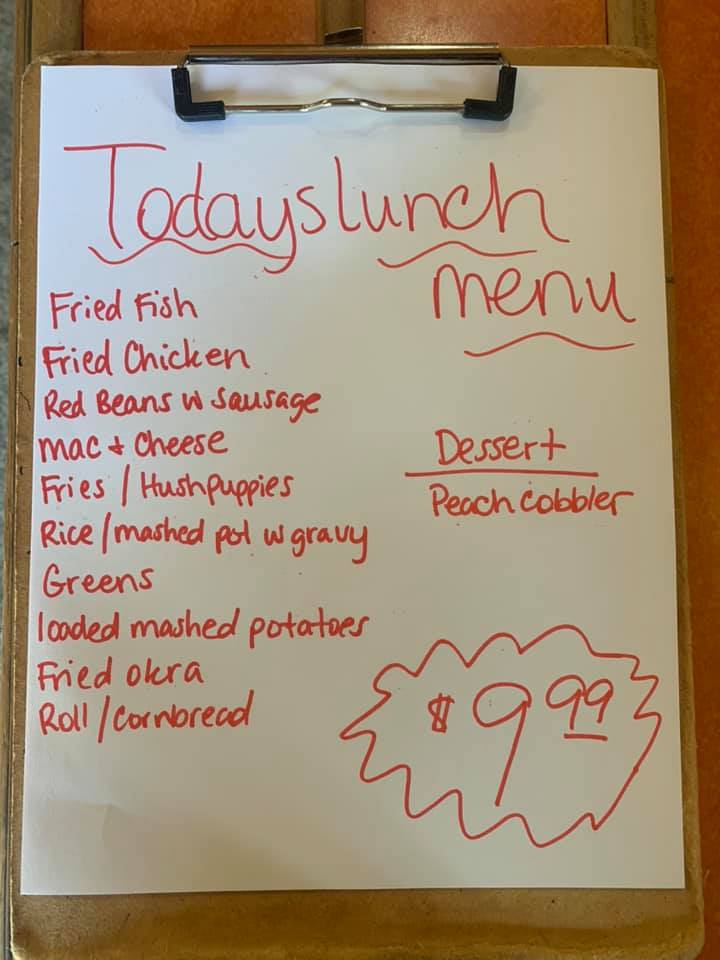 Todays lunch
menu
Fried Fish
Fried Chicken
Red Beans w sausage
mac & cheese
Fries / Hushpuppies
Rice / mashed pot w gravy
Greens
loaded mashed potatoes
Fried okra
Roll / cornbread
Dessert
Peach cobbler
$ 9 99